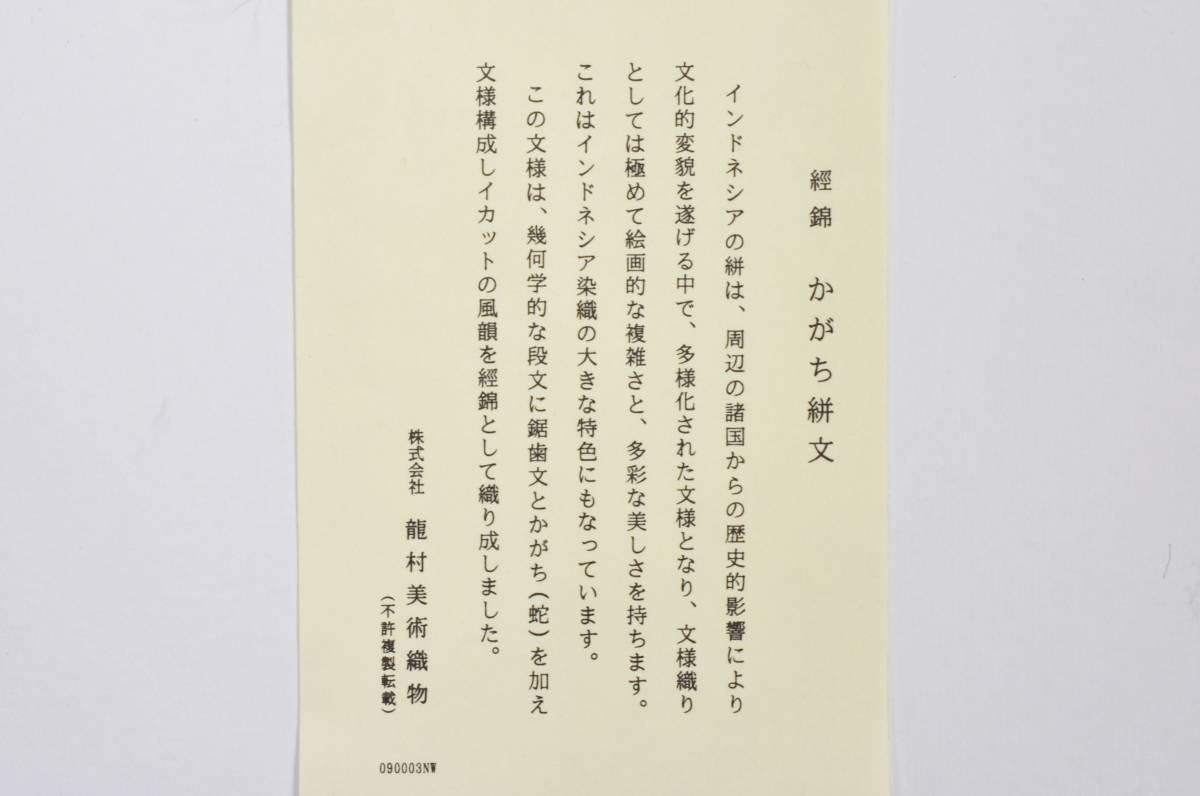 經錦 かがち絣文
インドネシアの絣は、周辺の諸国からの歴史的影響により
文化的変貌を遂げる中で、多様化された文様となり、文様織り
としては極めて絵画的な複雑さと、多彩な美しさを持ちます。
これはインドネシア染織の大きな特色にもなっています。
この文様は、幾何学的な段文に鋸歯文とかがち(蛇)を加え
文様構成しイカットの風韻を經錦として織り成しました。
株式会社 龍村美術織物
(不許複製転載)
090003NW